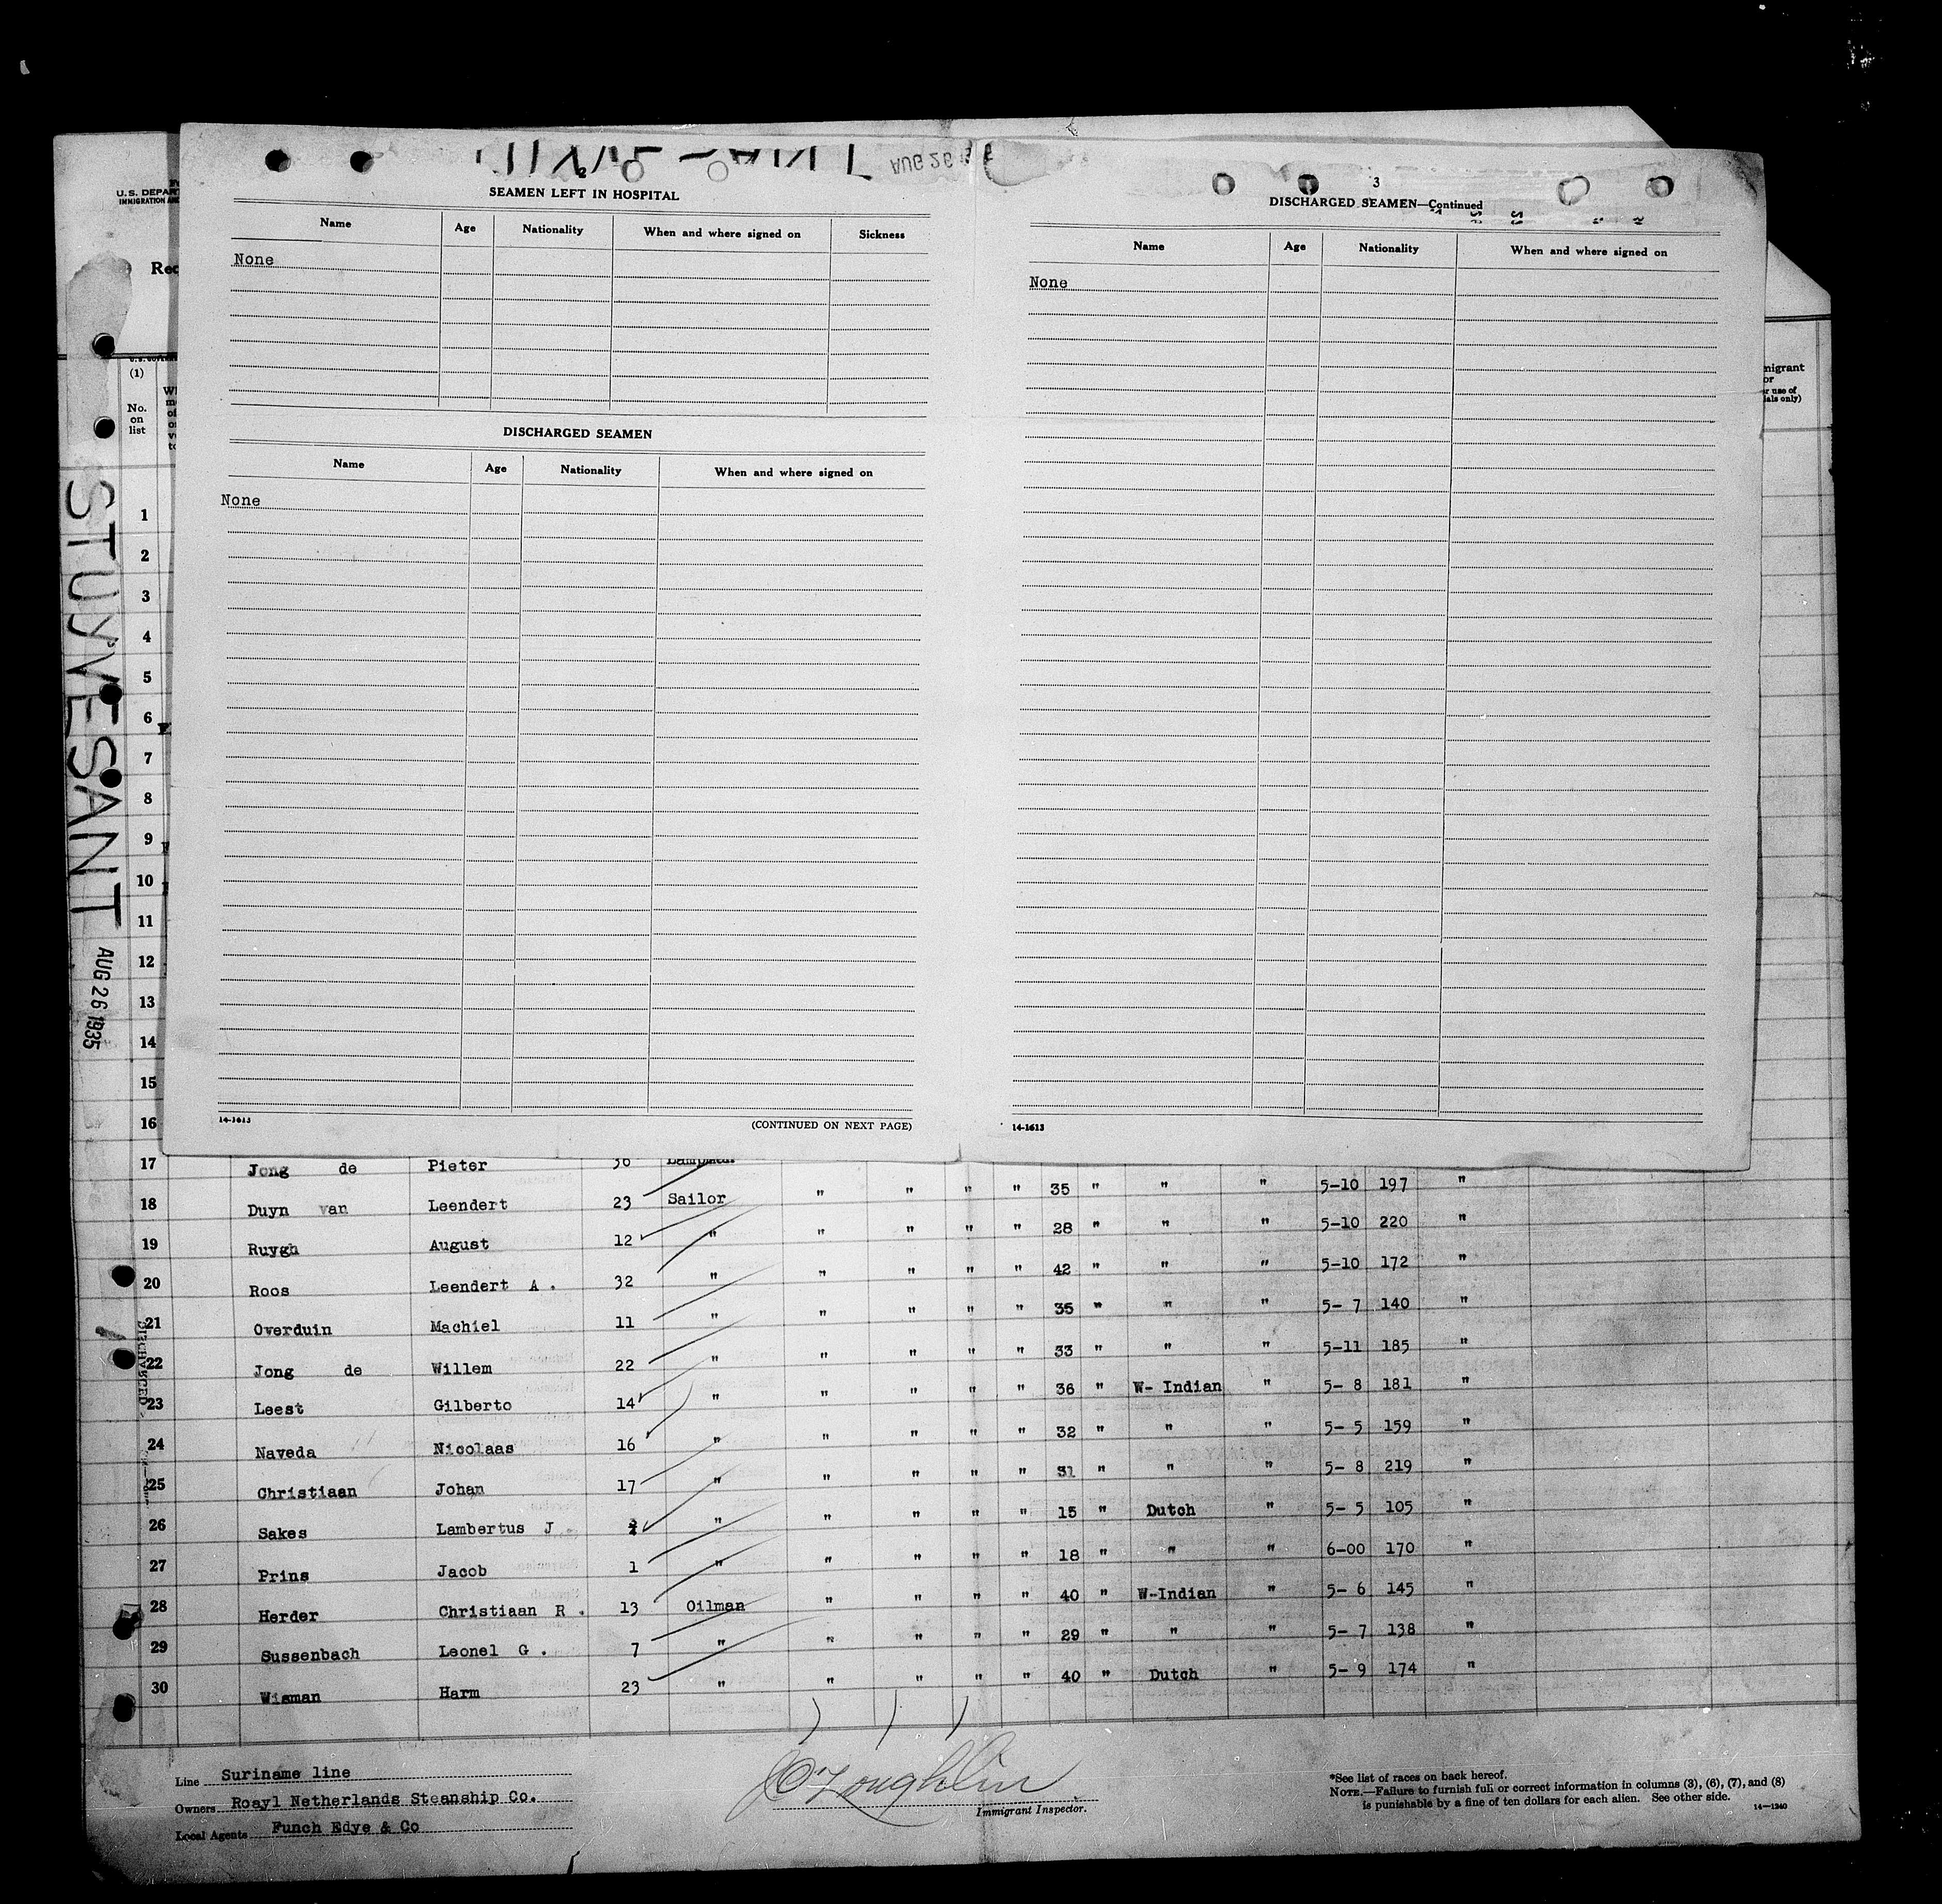 U.S. DEPAR
IMMIGRATION AN
Rec
(1)
No.
on
list
STUYVESANT
AUG 26 1935
AUG 26
2
SEAMEN LEFT IN HOSPITAL
Name Age Nationality When and where signed on Sickness
None
DISCHARGED SEAMEN
Name Age Nationality When and where signed on
None
14-1613
(CONTINUED ON NEXT PAGE)
3
DISCHARGED SEAMEN—Continued
Name Age Nationality When and where signed on
None
14-1613
migrant
or
r use of
ials only)
1
2
3
4
5
6
7
8
9
10
11
12
13
14
15
16
17 Jong de Pieter 36
18 Duyn van Leendert 23 Sailor " " " " 35 " " " 5-10 197 "
19 Ruygh August 12 " " " " " 28 " " " 5-10 220 "
20 Roos Leendert A. 32 " " " " " 42 " " " 5-10 172 "
21 Overduin Machiel 11 " " " " " 35 " " " 5- 7 140 "
22 Jong de Willem 22 " " " " " 33 " " " 5-11 185 "
23 Leest Gilberto 14 " " " " " 36 " W- Indian " 5- 8 181 "
24 Naveda Nicolaas 16 " " " " " 32 " " " 5- 5 159 "
25 Christiaan Johan 17 " " " " " 31 " " " 5- 8 219 "
26 Sakes Lambertus J. " " " " " 15 " Dutch " 5- 5 105 "
27 Prins Jacob 1 " " " " " 18 " " " 6-00 170 "
28 Herder Christiaan R. 13 Oilman " " " " 40 " W-Indian " 5- 6 145 "
29 Sussenbach Leonel G. 7 " " " " " 29 " " " 5- 7 138 "
30 Wisman Harm 23 " " " " " 40 " Dutch " 5- 9 174 "
DISCHARGED
Line Suriname line
Owners Roayl Netherlands Steanship Co.
Local Agents Funch Edye & Co
O'Loughlin
Immigrant Inspector.
*See list of races on back hereof.
NOTE.—Failure to furnish full or correct information in columns (3), (6), (7), and (8)
is punishable by a fine of ten dollars for each alien. See other side.
14—1240